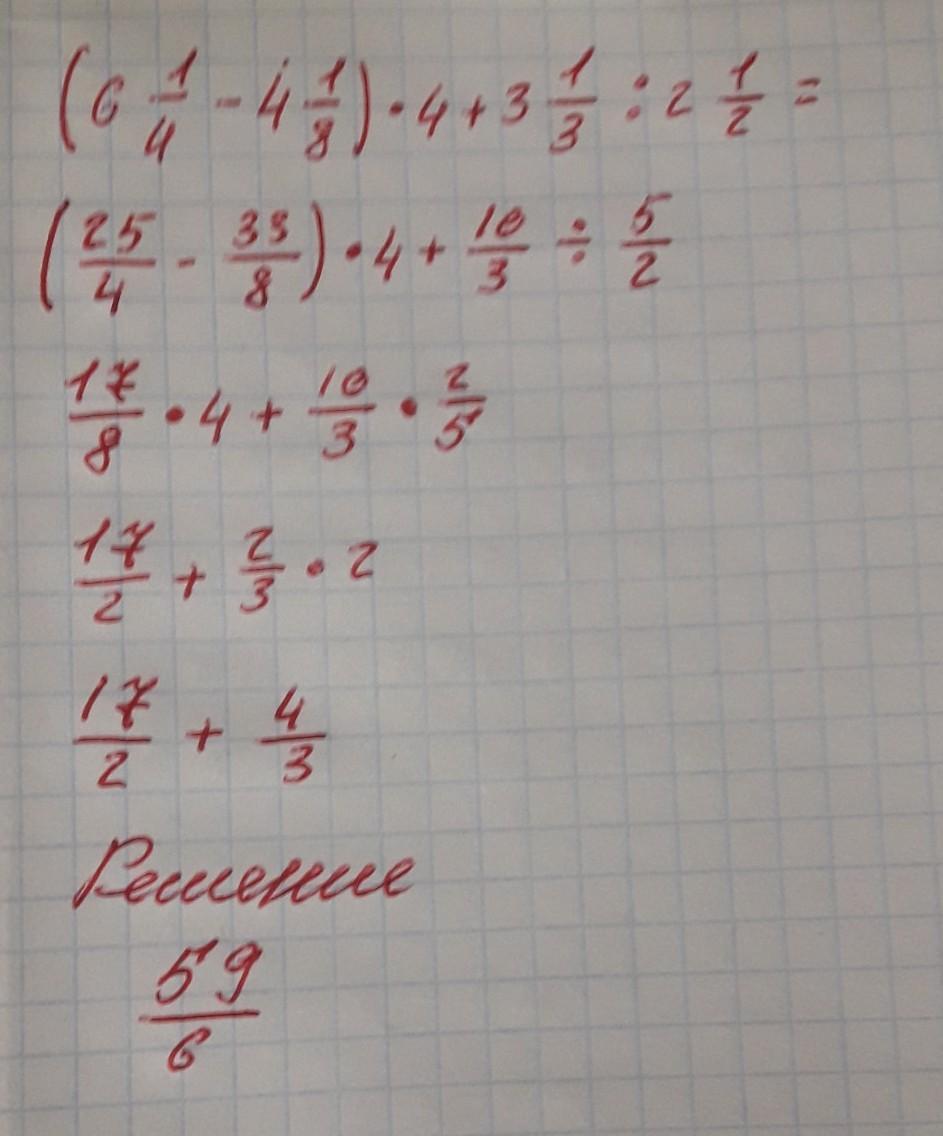 (6 1/4 - 4 1/8) · 4 + 3 1/3 : 2 1/2 =
(25/4 - 33/8) · 4 + 10/3 ÷ 5/2
17/8 · 4 + 10/3 · 2/5
17/2 + 2/3 · 2
17/2 + 4/3
Решение
59/6